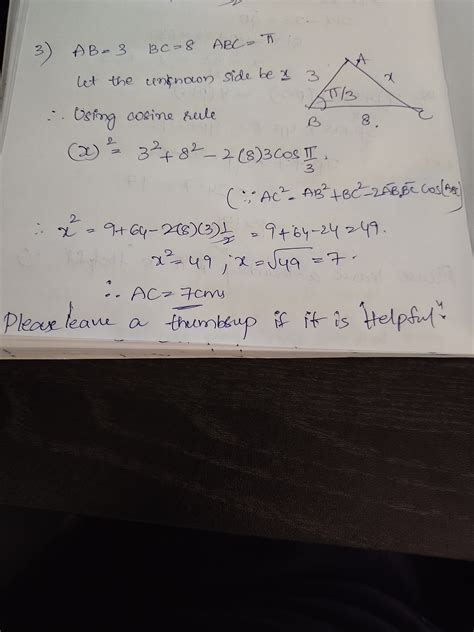 3) AB=3 BC=8 ABC=π
Let the unknown side be x
∴ Using cosine rule
A
3
x
π/3
B
8.
C
(x)²= 3²+8²-2(8)3cos π/3.
(∵ AC²=AB²+BC²-2AB,BC cos(ABC)
∴ x²=9+64-2(8)(3)1/2 = 9+64-24=49.
x²=49 ; x=√49 = 7.
∴ AC=7cms
Please leave a thumbsup if it is Helpful